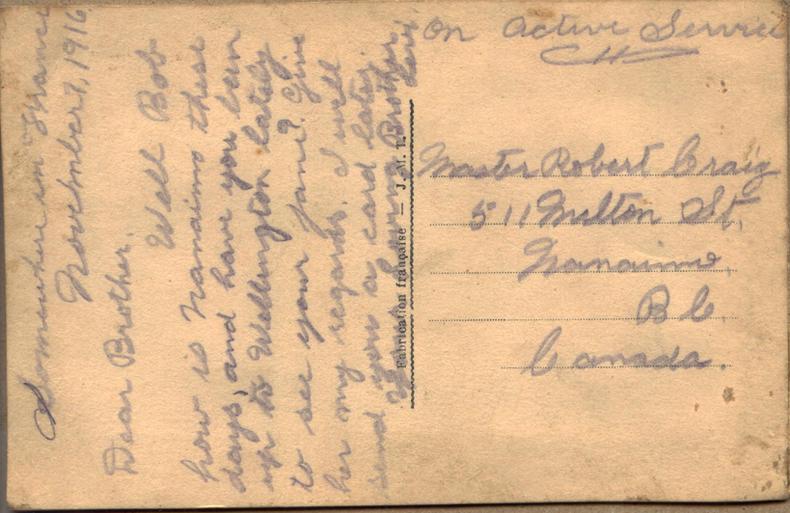 Somewhere in France
November 1, 1916
Dear Brother
Well Bob
how is Nanaimo these
days, and have you been
up to Wellington lately
to see your Jane? Give
her my regards. I will
send you a card later.
Your loving Brother,
Fabrication française — J. M. T.
On Active Service
Master Robert Craig
511 Milton St,
Nanaimo,
B C.
Canada.